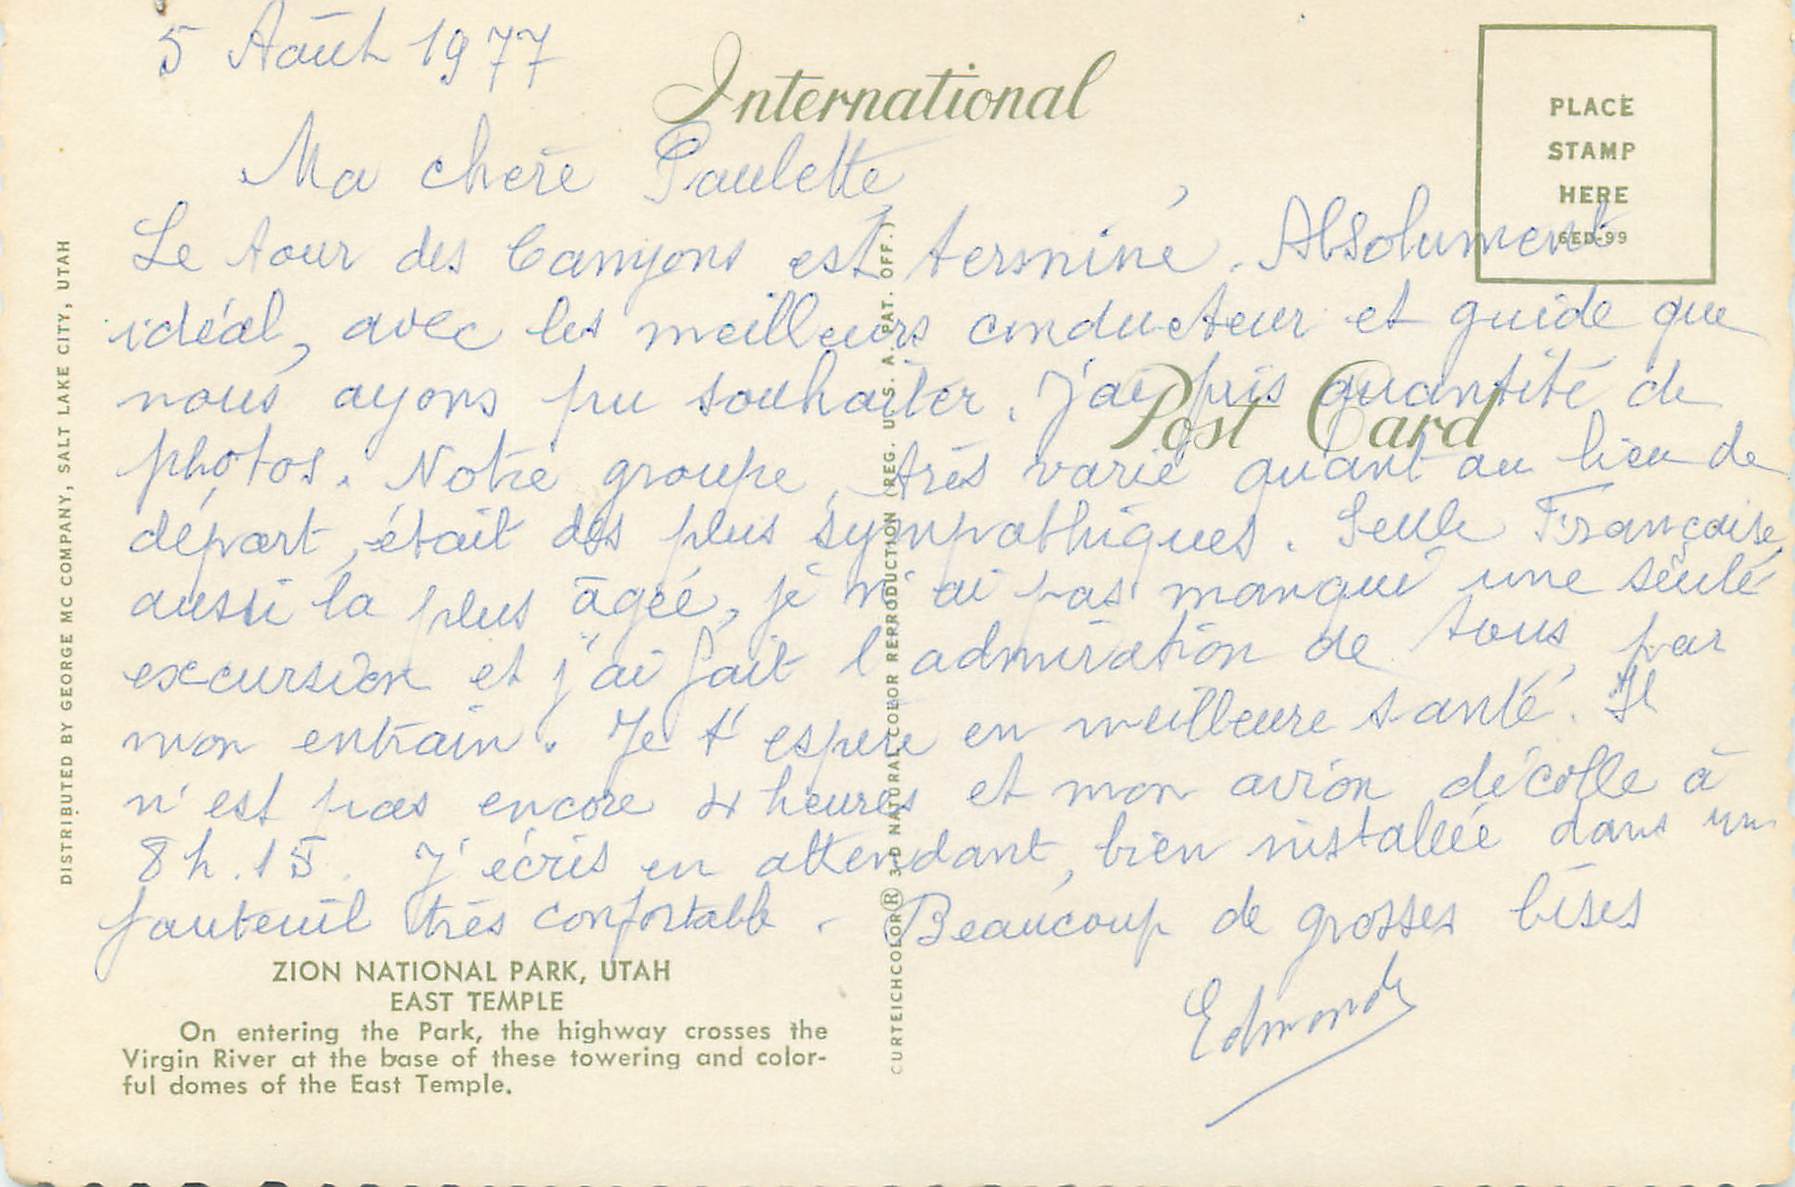 5 Août 1977
International
PLACE
STAMP
HERE
6ED-99
Ma chère Paulette,
Le tour des Canyons est terminé. Absolument
idéal, avec les meilleurs conducteur et guide que
nous ayons pu souhaiter. J'ai pris quantité de
Post Card
photos. Notre groupe, très varié quant au lieu de
départ, était des plus sympathiques. Seule Française,
aussi la plus âgée, je n'ai pas manqué une seule
excursion et j'ai fait l'admiration de tous, par
mon entrain. Je t'espère en meilleure santé. Il
n'est pas encore 4 heures et mon avion décolle à
8h.15. J'écris en attendant, bien installée dans un
fauteuil très confortable - Beaucoup de grosses bises
Edmonde
ZION NATIONAL PARK, UTAH
EAST TEMPLE
On entering the Park, the highway crosses the
Virgin River at the base of these towering and color-
ful domes of the East Temple.
DISTRIBUTED BY GEORGE MC COMPANY, SALT LAKE CITY, UTAH
CURTEICHCOLOR® 3-D NATURAL COLOR REPRODUCTION (REG. U.S. A. PAT. OFF.)